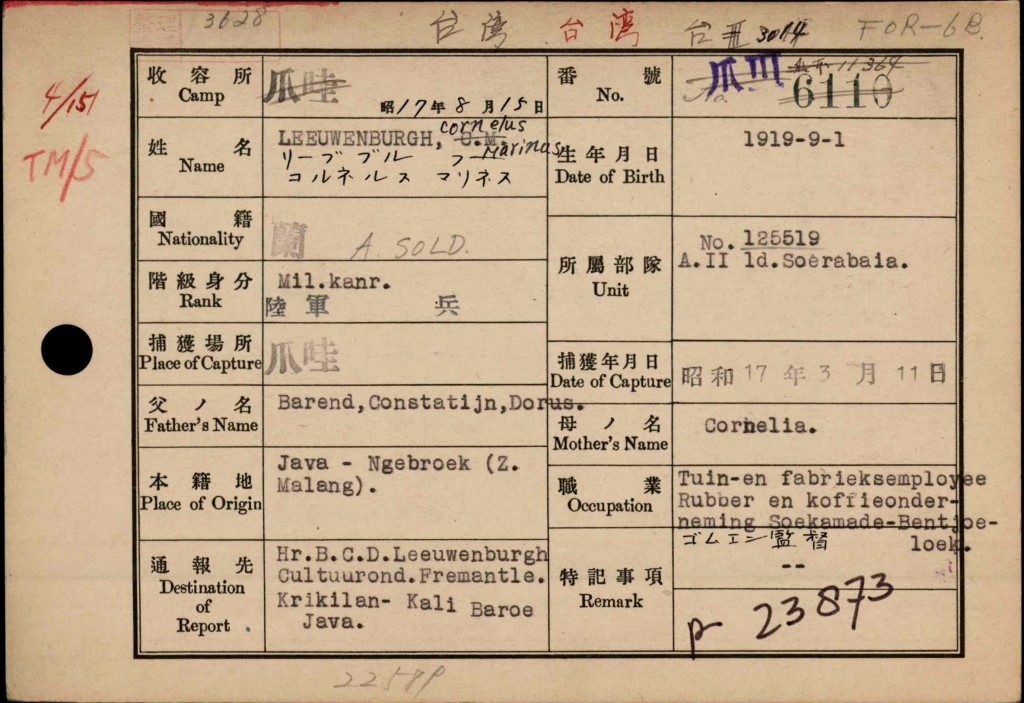 3628
台湾 台湾 台 3014 FOR-6B.
4/151
TM/5
收容所
Camp
爪哇
昭17年8月15日
番號
No.
爪 III
No. 11364
6110
姓名
Name
LEEUWENBURGH, C.M.
cornelus
Marinus
リーブブルフー
コルネルス マリネス
生年月日
Date of Birth
1919-9-1
國籍
Nationality
蘭 A. SOLD.
所屬部隊
Unit
No. 125519
A.II ld.Soerabaia.
階級身分
Rank
Mil.kanr.
陸軍 兵
捕獲場所
Place of Capture
爪哇
捕獲年月日
Date of Capture
昭和17年3月11日
父ノ名
Father's Name
Barend,Constatijn,Dorus.
母ノ名
Mother's Name
Cornelia.
本籍地
Place of Origin
Java - Ngebroek (Z.
Malang).
職業
Occupation
Tuin-en fabrieksemployee
Rubber en koffieonder-
neming Soekamade-Bentjoe-
loek.
ゴムエン監督
通報先
Destination
of
Report
Hr.B.C.D.Leeuwenburgh
Cultuurond.Fremantle.
Krikilan- Kali Baroe
Java.
特記事項
Remark
--
23873
22589